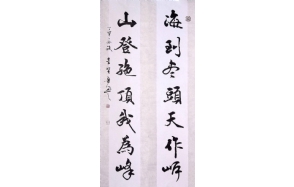 海到尽頭天作岸
山登絶頂我為峰